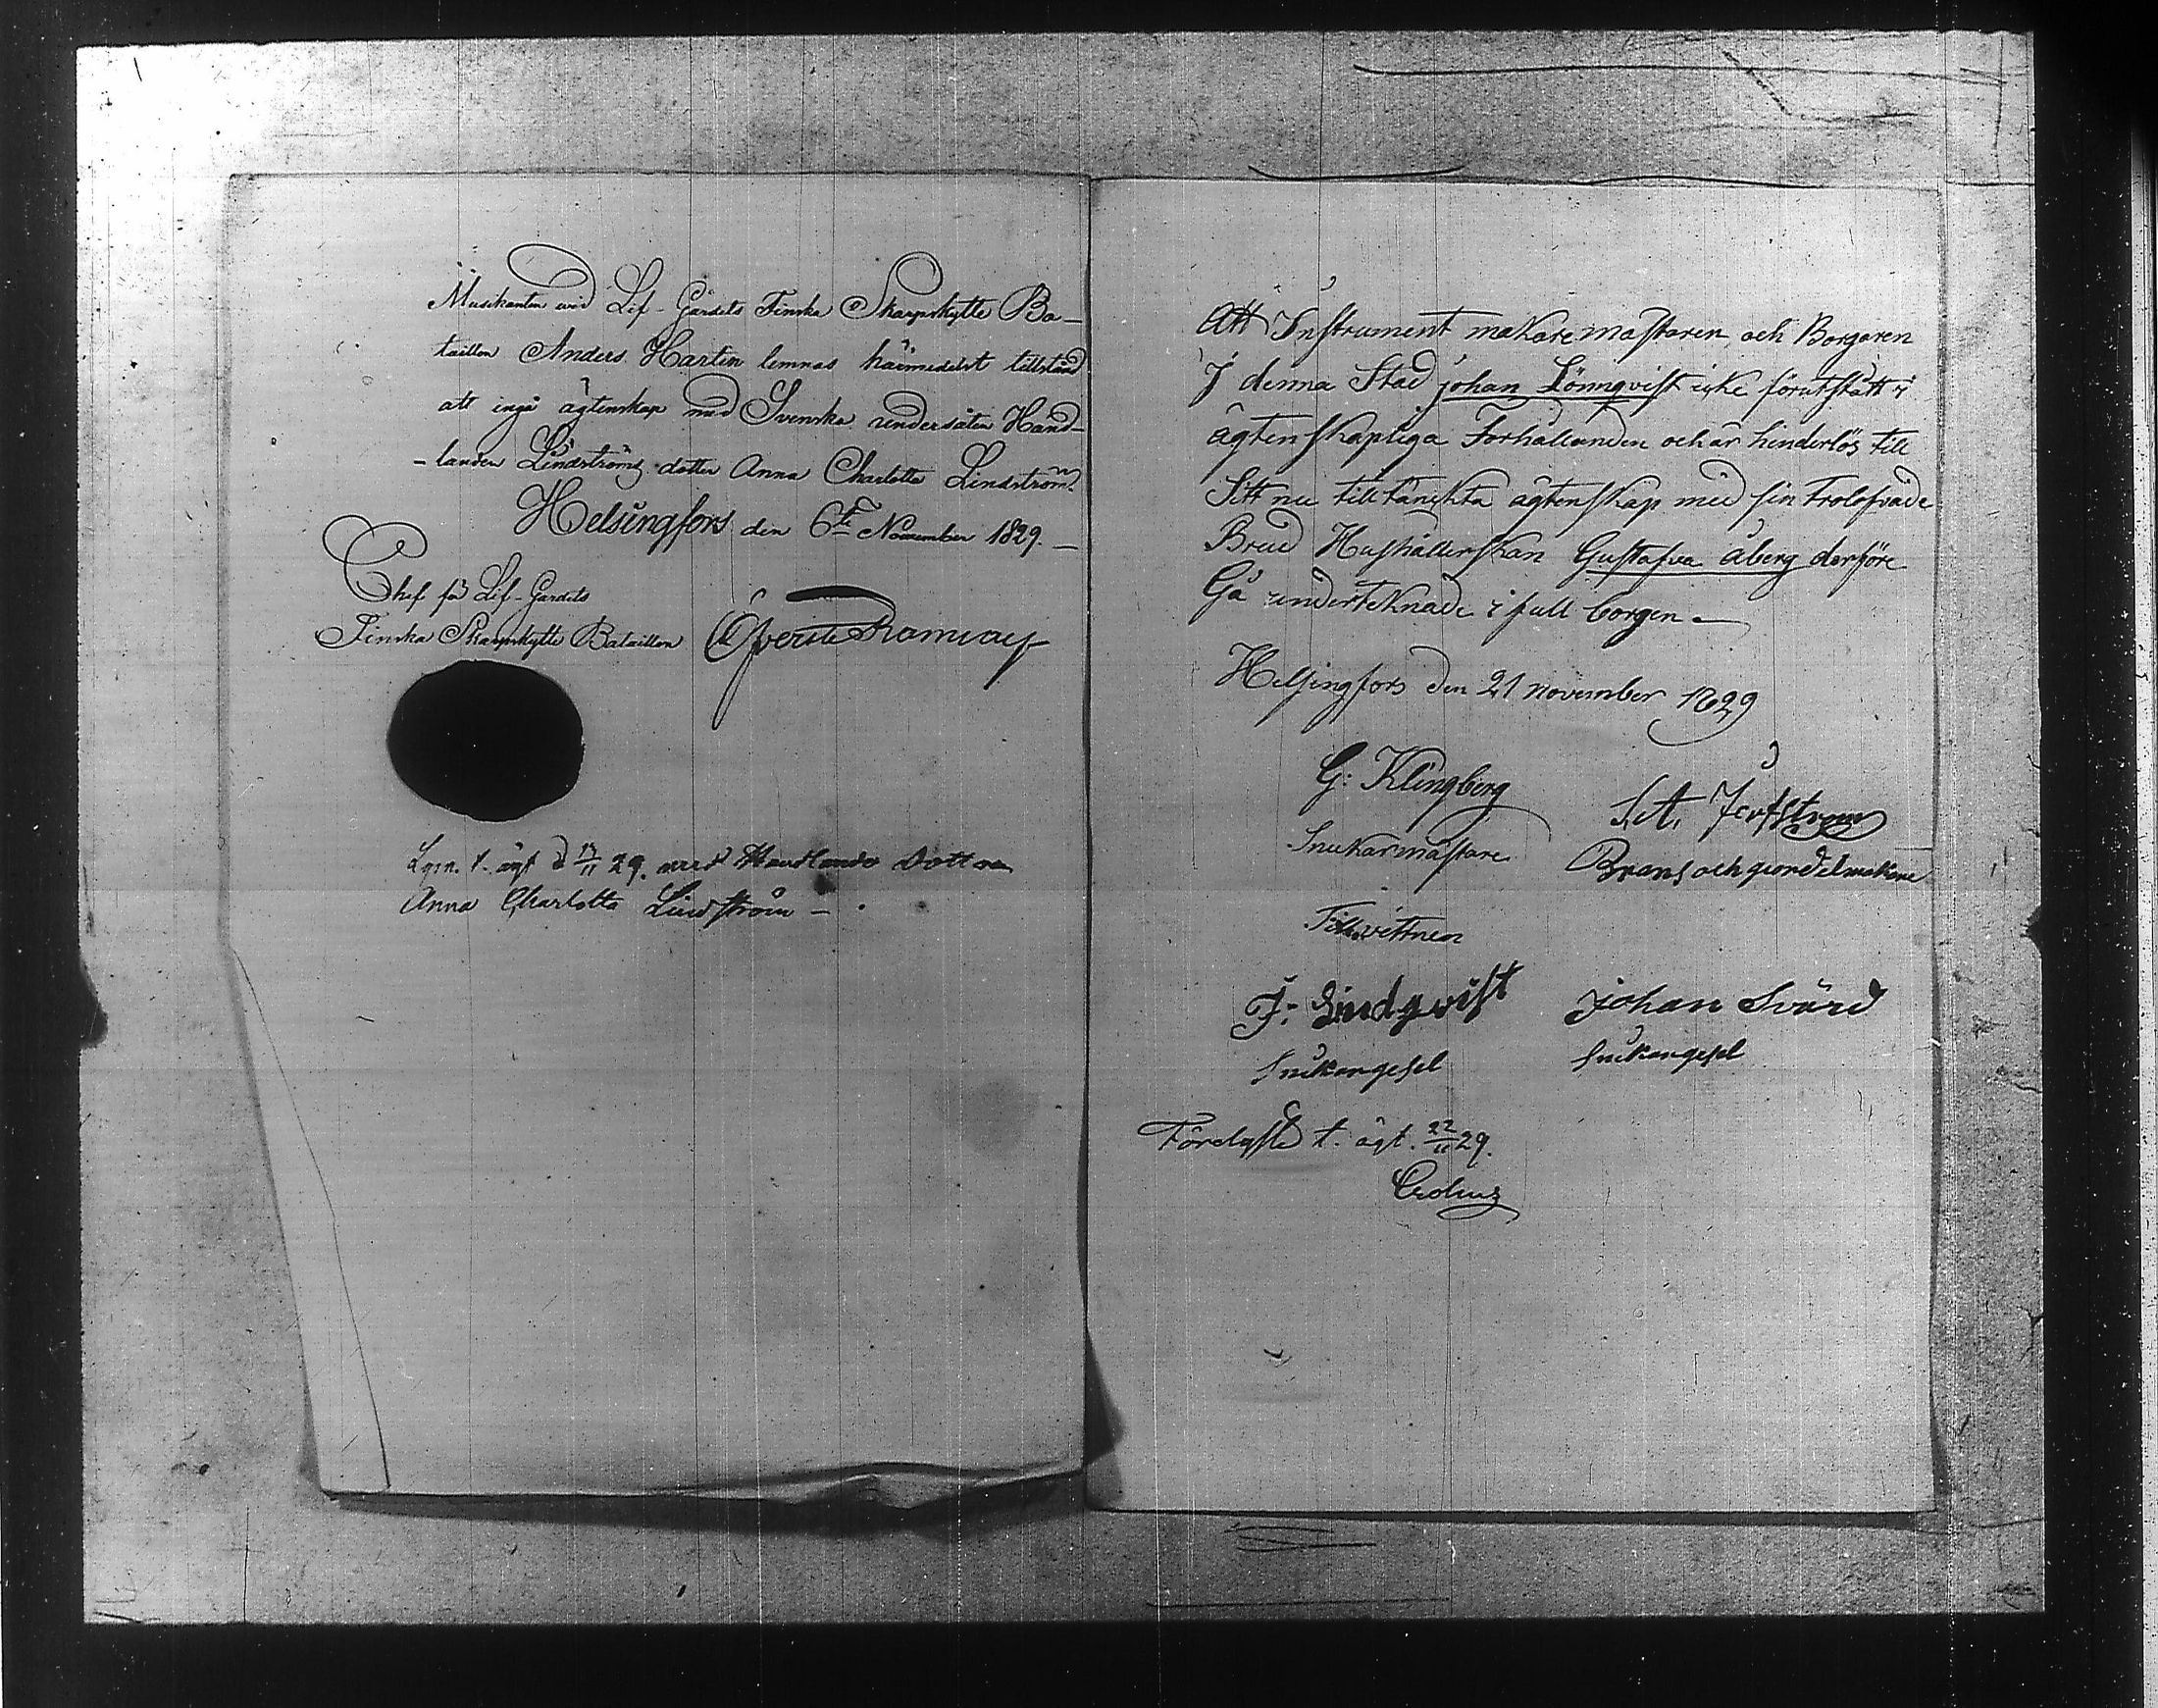 Musikanten wid Lif-Gardets Finska Skarpskytte Ba-
taillon Anders Hartin lemnas härmedelst tillstånd
att ingå ägtenskap med Svenska undersåten Hand-
-landen Lindströms dotter Anna Charlotta Lindström.
Helsingfors den 6te November 1829.
Chef för Lif-Gardets
Finska Skarpskytte Bataillon Öfverste Ramsay
Lysn. t. ägt d 13/11 29. med Handlande Dottren
Anna Charlotta Lindström -
Att Instrument makare mästaren och Borgaren
J denna Stad johan Lönnqvist icke förut stått i
ägtenskapliga Förhållanden och är hinderlös till
Sitt nu till tänckta ägtenskap med sin Trolofvade
Brud Hushållerskan Gustafva Åberg derföre
Gå undertecknade i full borgen -
Helsingfors den 21 november 1829
G: Klingberg
Snickarmästare
Brans och giordelmakare
Till vittnen
F: Lindqvist
Snickargesel
johan Svärd
Snickargesel
Förelyste t. ägt. 22/11 29.
Crohns